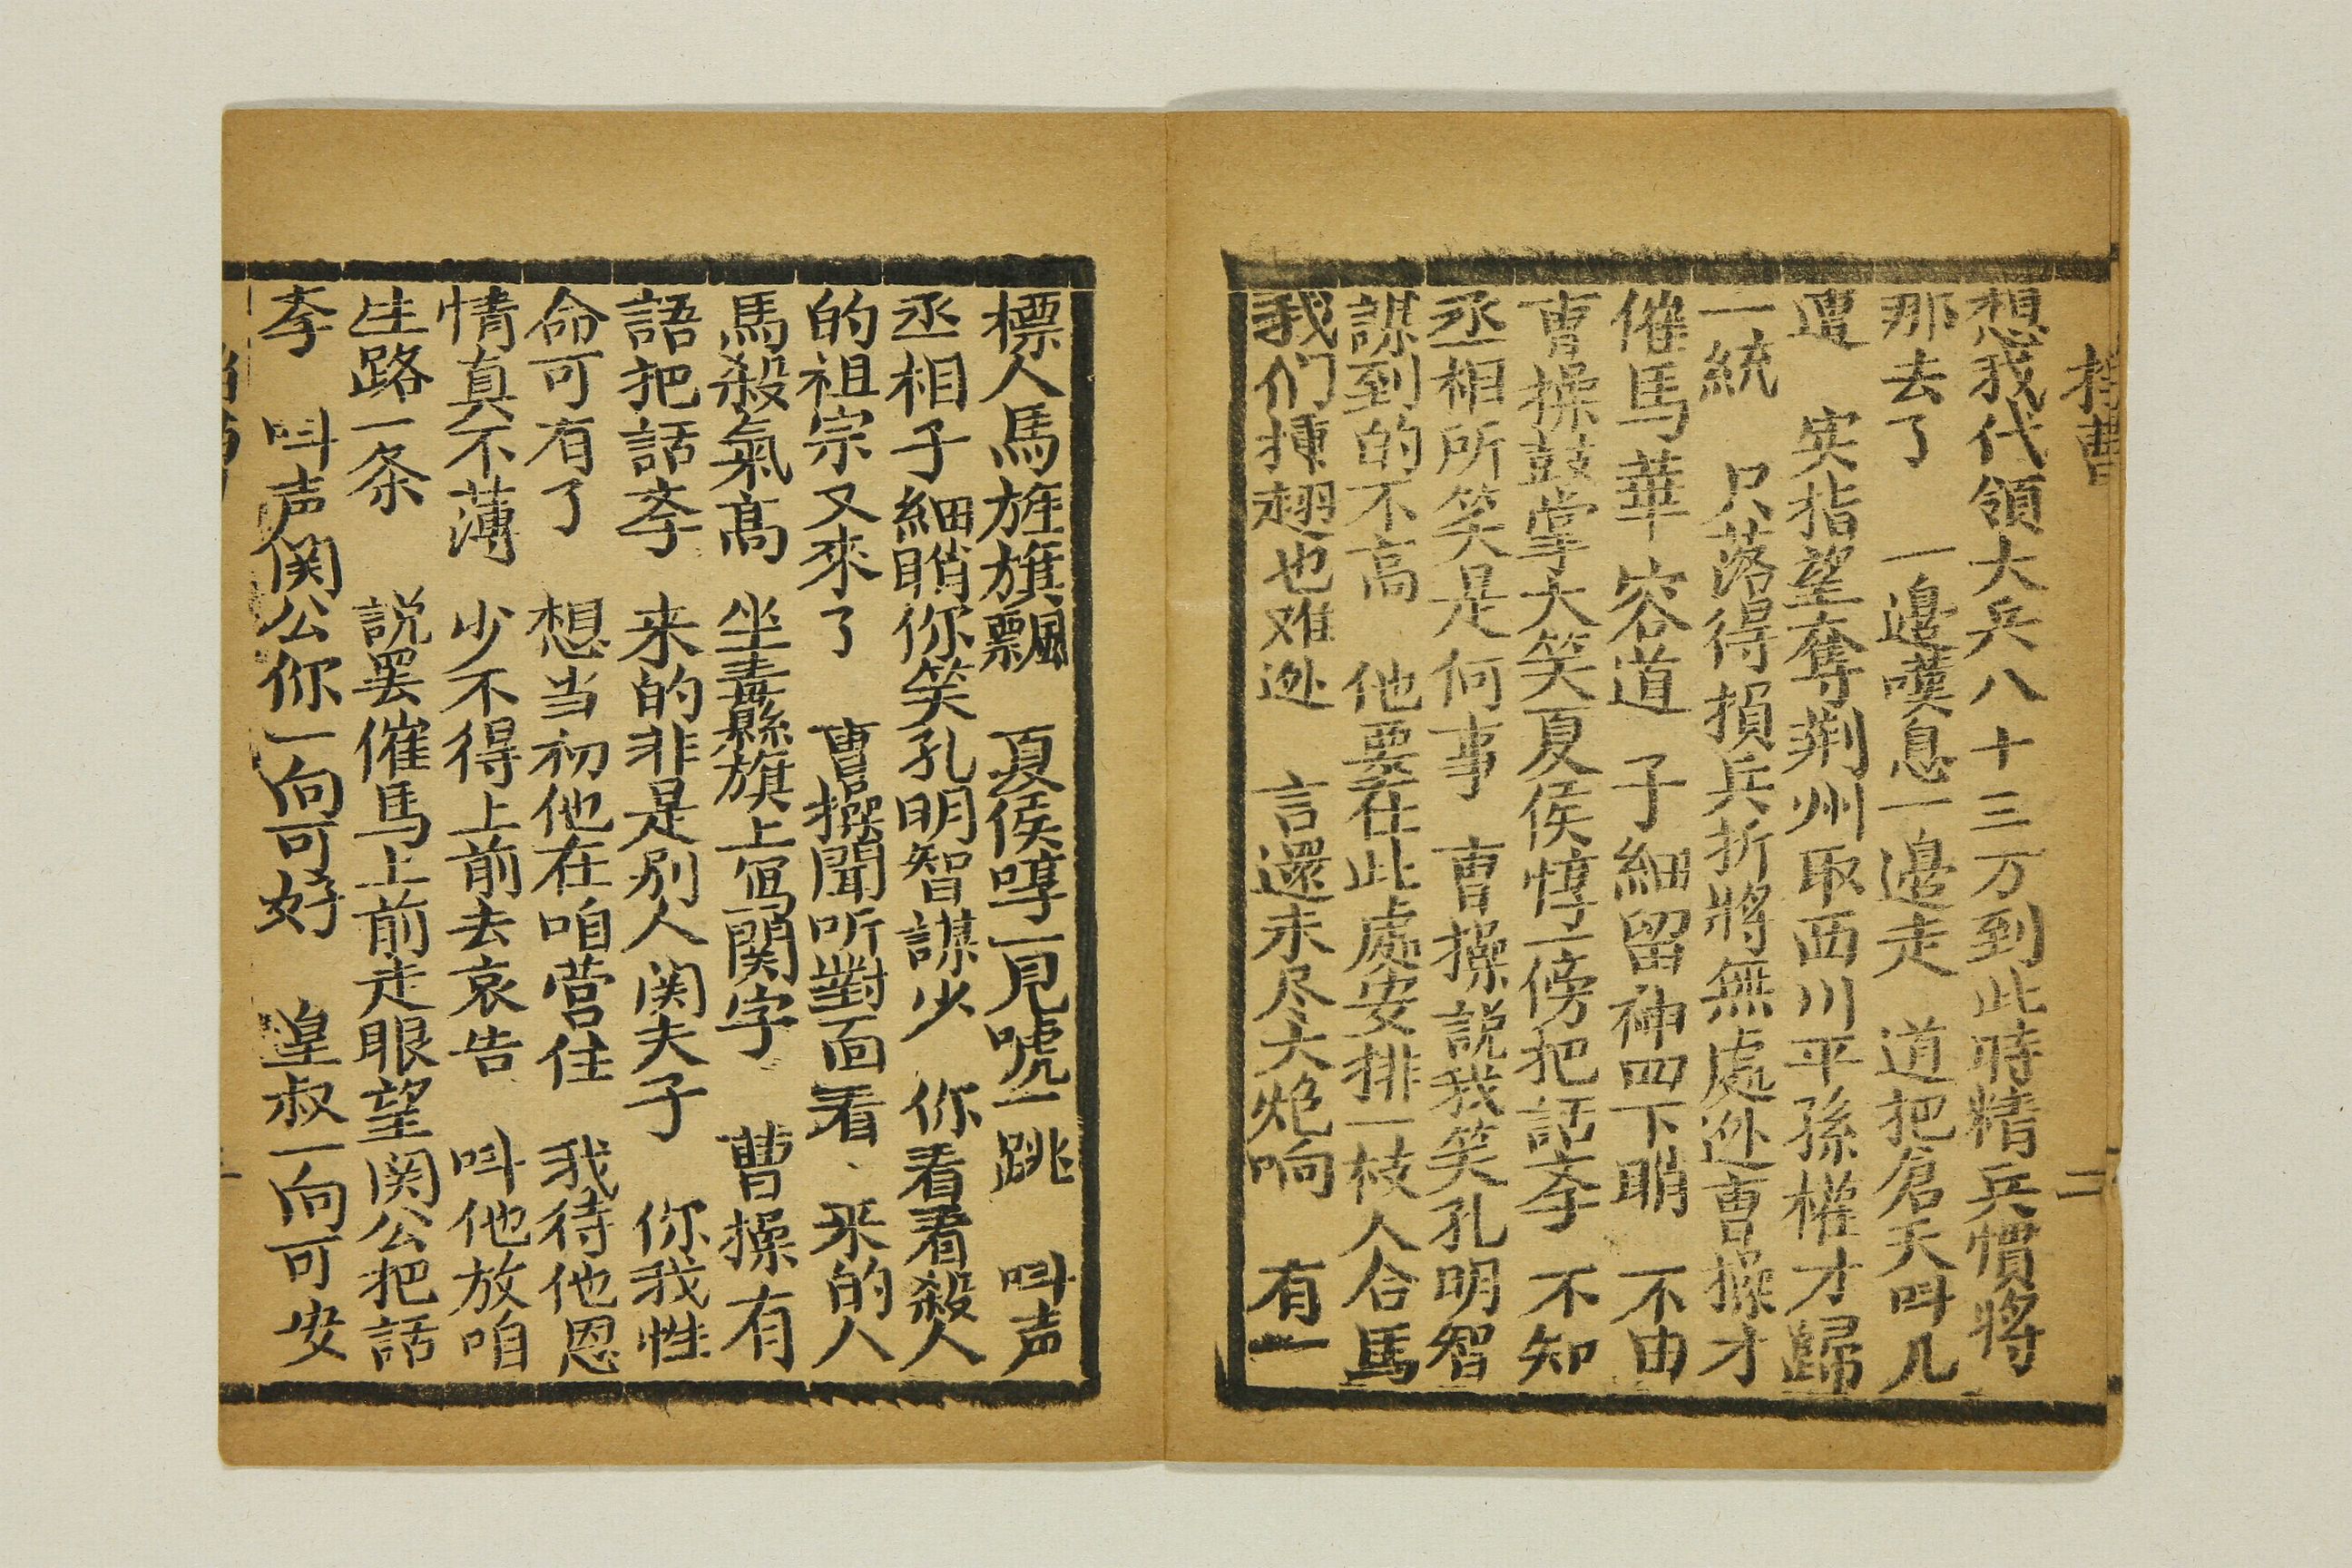 想我代領大兵八十三万到此時精兵慣將
那去了　一邉嘆息一邉走　道把倉天呌几
遭　寔指望奪荆州取西川平孫權才歸
一統　只落得損兵折將無處迯曹操才
催馬華容道　子細留神四下睄　不由
曹操鼓掌大笑夏侯惇一傍把話孝　不知
丞相所笑是何事　曹操説我笑孔明智
謀到的不高　他要在此處安排一枝人合馬
我们揷翅也难迯　言還未尽大炮响　有一
標人馬旌旗飄　夏侯嗱一見唬一跳　呌声
丞相子細睄你笑孔明智謀少　你看看殺人
的祖宗又來了　曹操聞听對面看　来的人
馬殺氣高　坐纛縣旗上寫関字　曹操有
語把話孝　来的非是别人関夫子　你我性
命可有了　想当初他在咱营住　我待他恩
情真不薄　少不得上前去哀告　呌他放咱
生路一条　説罢催馬上前走眼望関公把話
孝　呌声関公你一向可好　皇叔一向可安